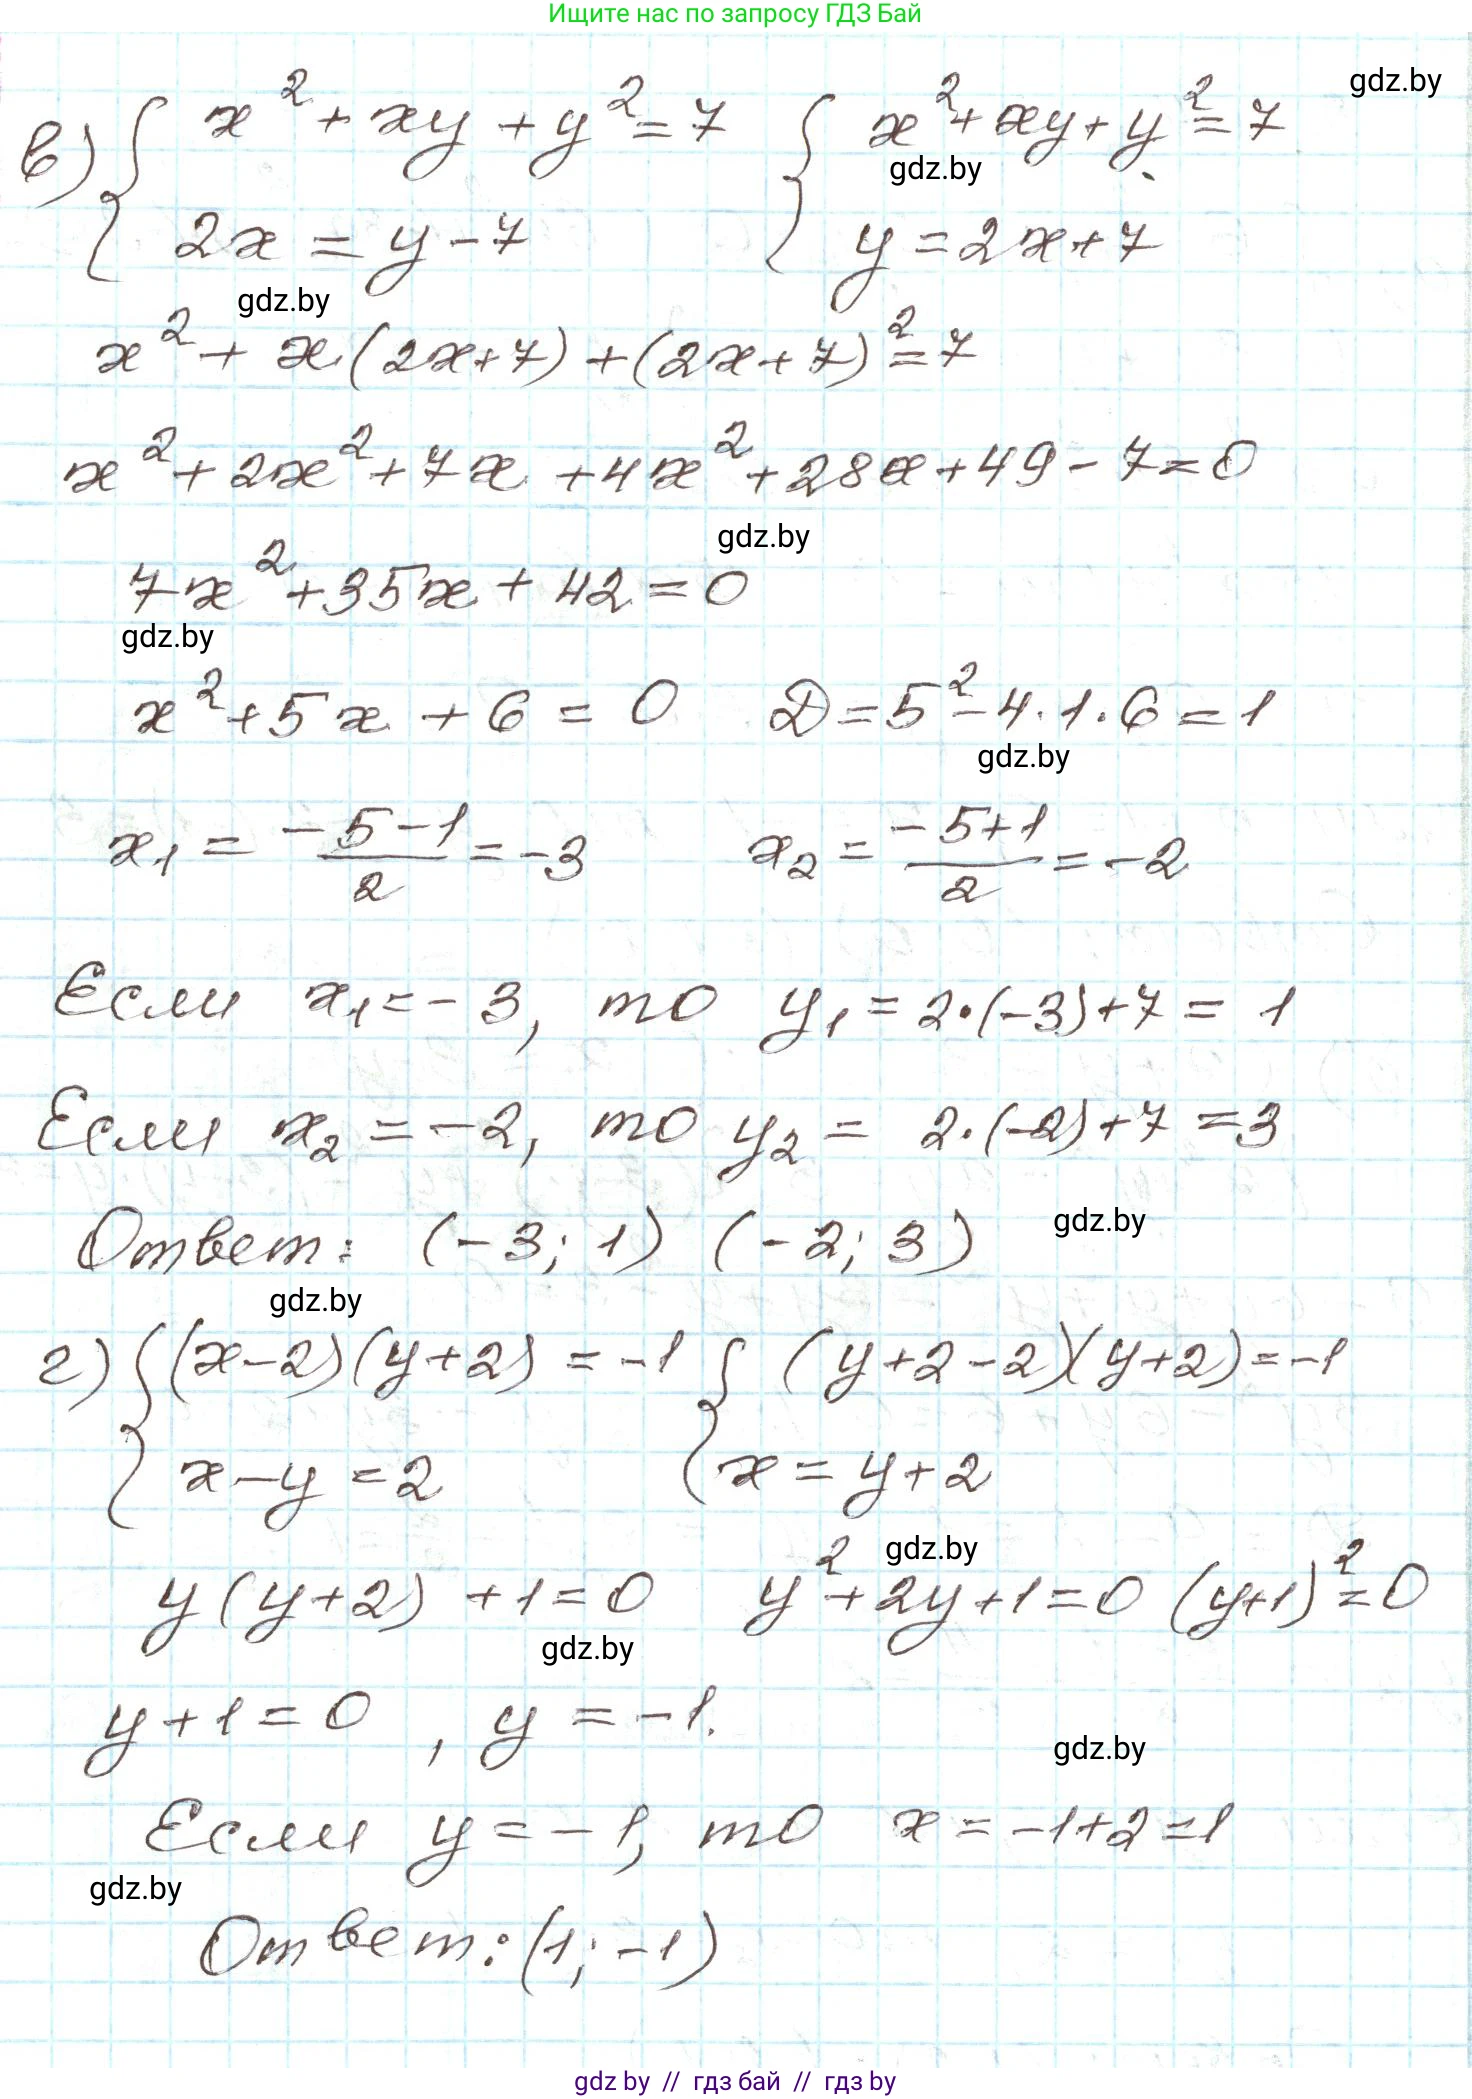 Ищите нас по запросу ГДЗ Бай
gdz.by
в) { x² + xy + y² = 7 { x² + xy + y² = 7
gdz.by
2x = y - 7 y = 2x + 7
gdz.by
x² + x(2x+7) + (2x+7)² = 7
x² + 2x² + 7x + 4x² + 28x + 49 - 7 = 0
gdz.by
7x² + 35x + 42 = 0
gdz.by
x² + 5x + 6 = 0 D = 5² - 4·1·6 = 1
gdz.by
x₁ = (-5-1)/2 = -3 x₂ = (-5+1)/2 = -2
Если x₁ = -3, то y₁ = 2·(-3)+7 = 1
Если x₂ = -2, то y₂ = 2·(-2)+7 = 3
gdz.by
Ответ: (-3; 1) (-2; 3)
gdz.by
г) { (x-2)(y+2) = -1 { (y+2-2)(y+2) = -1
x - y = 2 x = y + 2
gdz.by
y(y+2) + 1 = 0 y² + 2y + 1 = 0 (y+1)² = 0
gdz.by
y + 1 = 0 , y = -1.
gdz.by
Если y = -1, то x = -1+2 = 1
gdz.by
Ответ: (1; -1)
gdz by // гдз бай // гдз by